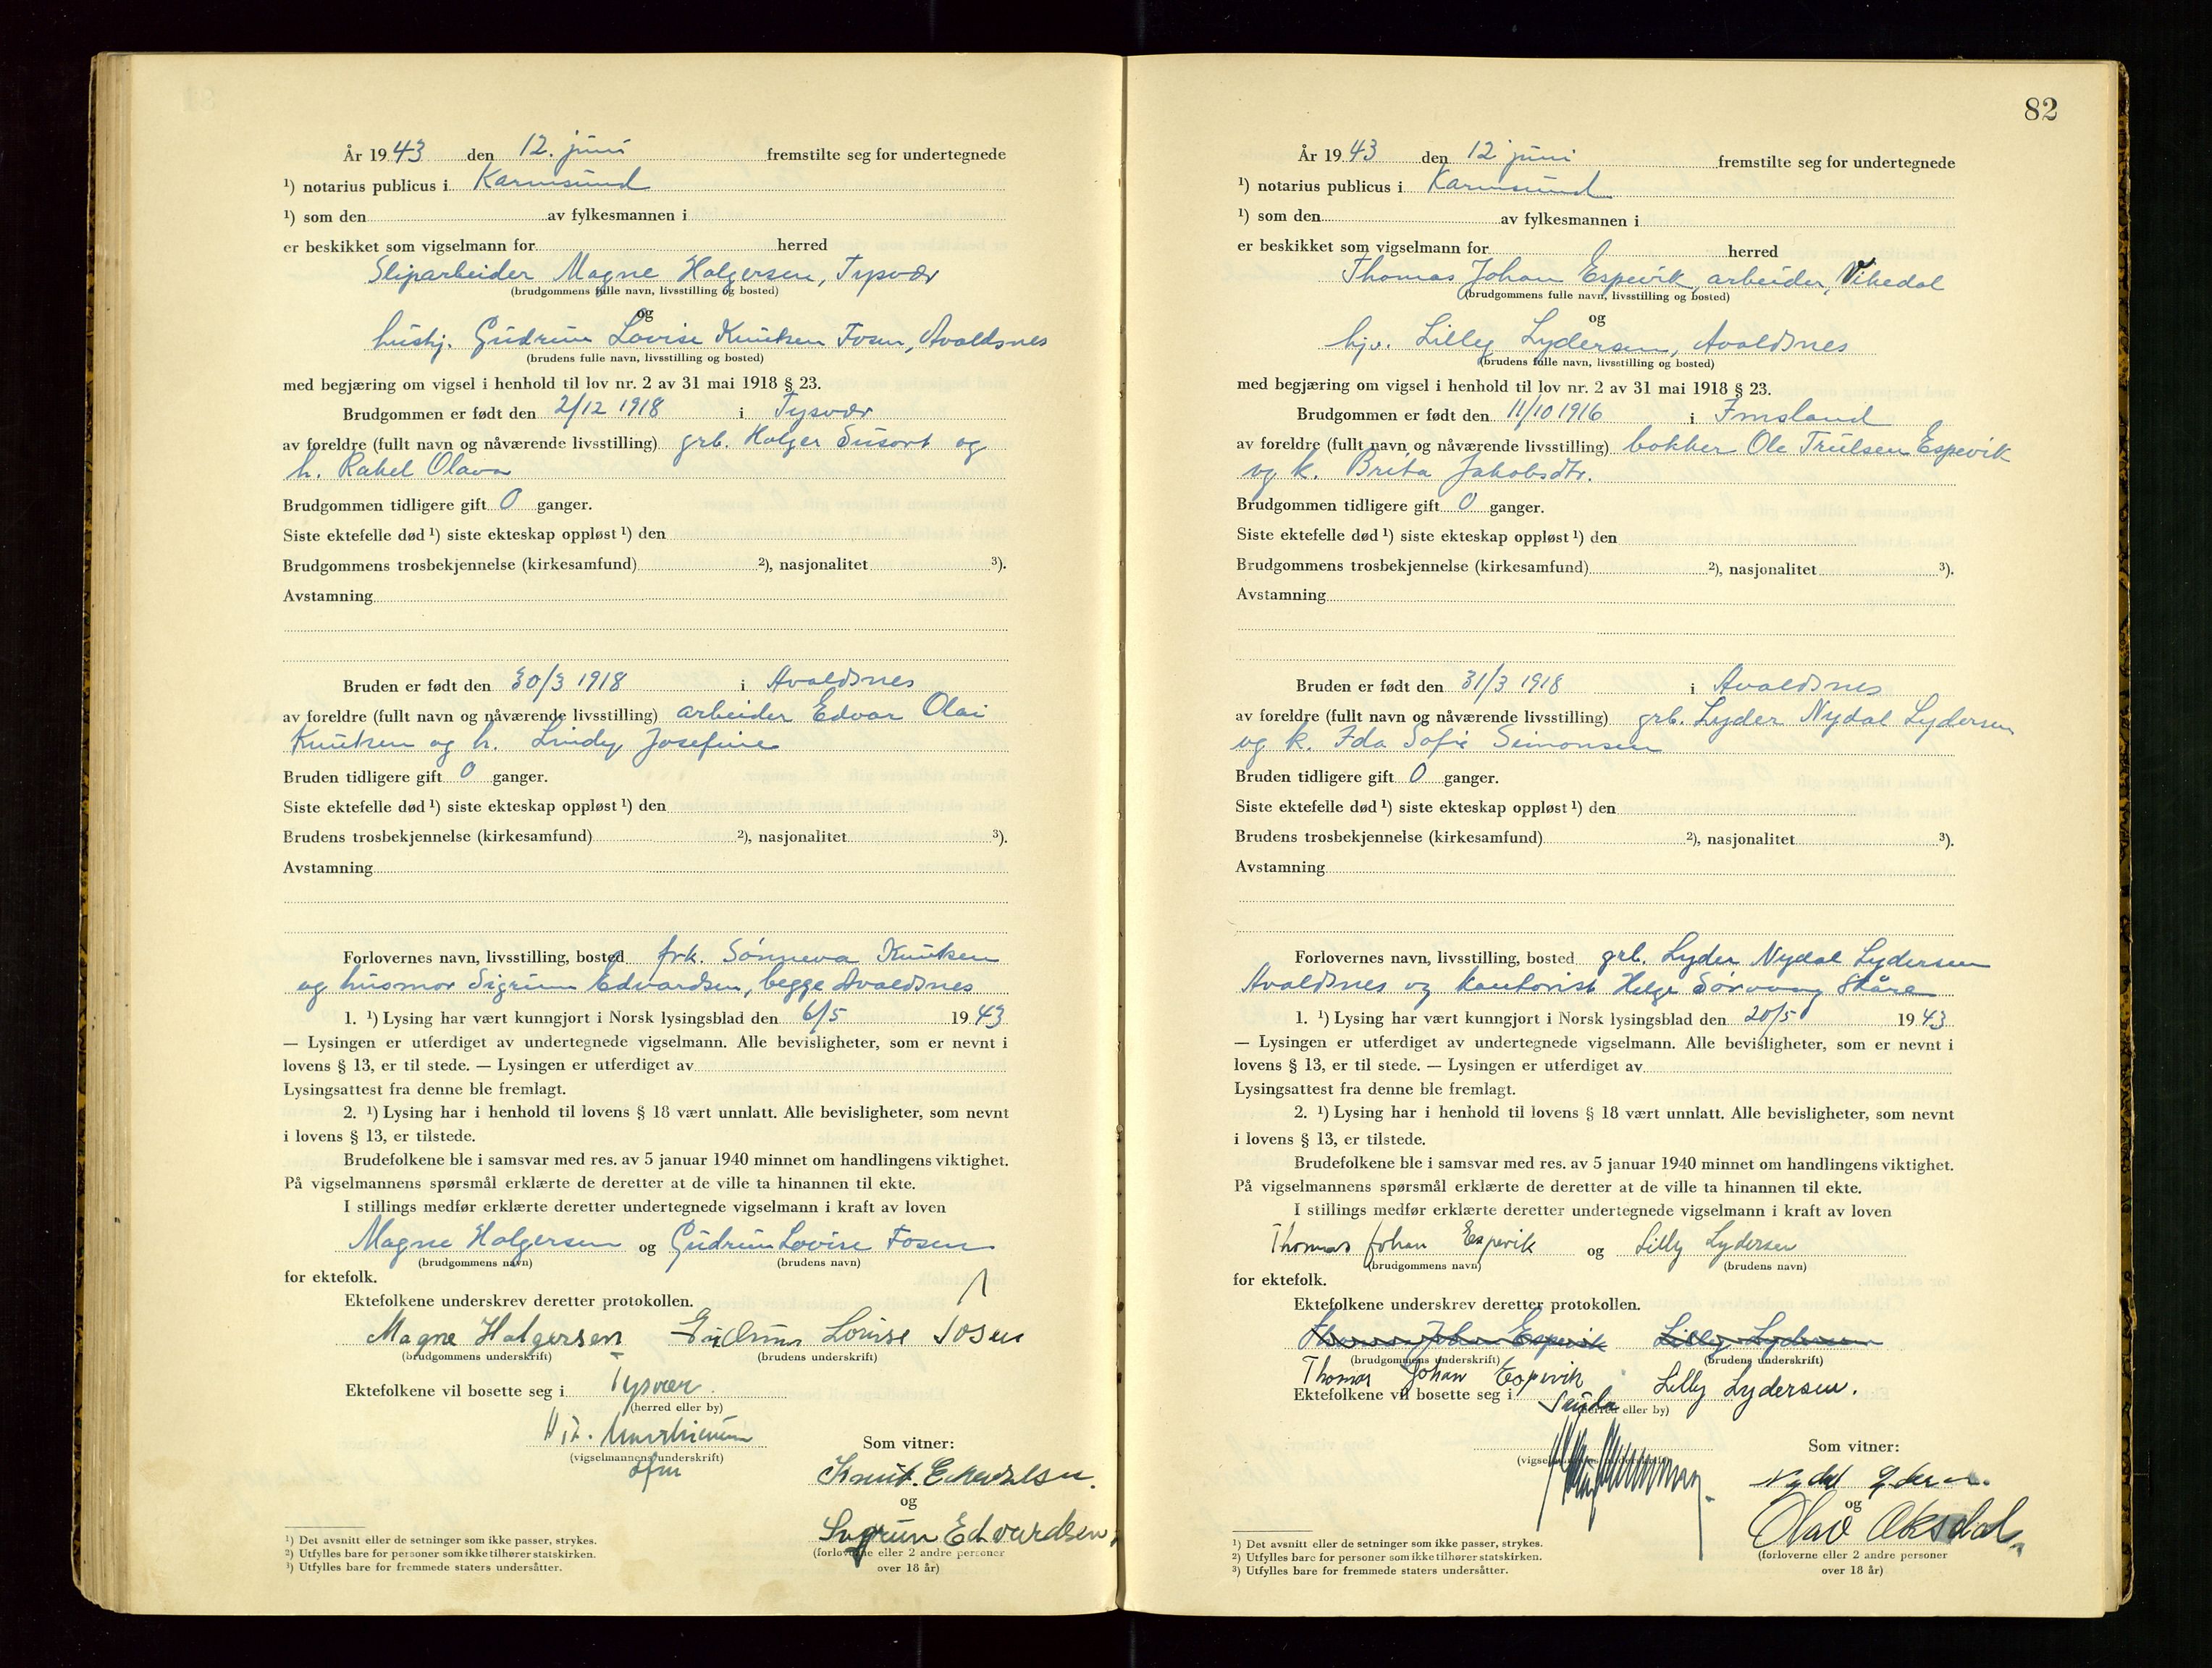 År 1943 den 12. juni fremstilte seg for undertegnede
¹) notarius publicus i Karmsund
¹) som den av fylkesmannen i
er beskikket som vigselmann for herred
Sliparbeider Magne Holgersen, Tysvær
(brudgommens fulle navn, livsstilling og bosted)
og
hushj. Gudrun Lovise Knutsen Fosen, Avaldsnes
(brudens fulle navn, livsstilling og bosted)
med begjæring om vigsel i henhold til lov nr. 2 av 31 mai 1918 § 23.
Brudgommen er født den 2/12 1918 i Tysvær
av foreldre (fullt navn og nåværende livsstilling) grb. Holger Susort og
h. Rakel Olava
Brudgommen tidligere gift 0 ganger.
Siste ektefelle død ¹) siste ekteskap oppløst ¹) den
Brudgommens trosbekjennelse (kirkesamfund) ²), nasjonalitet ³).
Avstamning
Bruden er født den 30/3 1918 i Avaldsnes
av foreldre (fullt navn og nåværende livsstilling) arbeider Edvar Olai
Knutsen og h. Lindy Josefine
Bruden tidligere gift 0 ganger.
Siste ektefelle død ¹) siste ekteskap oppløst ¹) den
Brudens trosbekjennelse (kirkesamfund) ²), nasjonalitet ³).
Avstamning
Forlovernes navn, livsstilling, bosted frk. Sønneva Knutsen
og husmor Sigrun Edvardsen, begge Avaldsnes
1. ¹) Lysing har vært kunngjort i Norsk lysingsblad den 6/5 1943
— Lysingen er utferdiget av undertegnede vigselmann. Alle bevisligheter, som er nevnt i
lovens § 13, er til stede. — Lysingen er utferdiget av
Lysingsattest fra denne ble fremlagt.
2. ¹) Lysing har i henhold til lovens § 18 vært unnlatt. Alle bevisligheter, som nevnt
i lovens § 13, er tilstede.
Brudefolkene ble i samsvar med res. av 5 januar 1940 minnet om handlingens viktighet.
På vigselmannens spørsmål erklærte de deretter at de ville ta hinannen til ekte.
I stillings medfør erklærte deretter undertegnede vigselmann i kraft av loven
Magne Holgersen og Gudrun Lovise Fosen
(brudgommens navn) (brudens navn)
for ektefolk.
Ektefolkene underskrev deretter protokollen.
Magne Holgersen Gudrun Lovise Fosen
(brudgommens underskrift) (brudens underskrift)
Ektefolkene vil bosette seg i Tysvær.
(herred eller by)
Som vitner:
(vigselmannens underskrift)
Knut
og
Sigrun Edvardsen
(forloverne eller 2 andre personer
over 18 år)
¹) Det avsnitt eller de setninger som ikke passer, strykes.
²) Utfylles bare for personer som ikke tilhører statskirken.
³) Utfylles bare for fremmede staters undersåtter.
82
År 1943 den 12 juni fremstilte seg for undertegnede
¹) notarius publicus i Karmsund
¹) som den av fylkesmannen i
er beskikket som vigselmann for herred
Thomas Johan Espevik, arbeider, Vikedal
(brudgommens fulle navn, livsstilling og bosted)
og
hjv. Lilly Lydersen, Avaldsnes
(brudens fulle navn, livsstilling og bosted)
med begjæring om vigsel i henhold til lov nr. 2 av 31 mai 1918 § 23.
Brudgommen er født den 11/10 1916 i Imsland
av foreldre (fullt navn og nåværende livsstilling) bøkker Ole Trulsen Espevik
og k. Brita Jakobsdtr.
Brudgommen tidligere gift 0 ganger.
Siste ektefelle død ¹) siste ekteskap oppløst ¹) den
Brudgommens trosbekjennelse (kirkesamfund) ²), nasjonalitet ³).
Avstamning
Bruden er født den 31/3 1918 i Avaldsnes
av foreldre (fullt navn og nåværende livsstilling) grb. Lyder Nydal Lydersen
og k. Ida Sofie Simonsen
Bruden tidligere gift 0 ganger.
Siste ektefelle død ¹) siste ekteskap oppløst ¹) den
Brudens trosbekjennelse (kirkesamfund) ²), nasjonalitet ³).
Avstamning
Forlovernes navn, livsstilling, bosted grb. Lyder Nydal Lydersen
Avaldsnes og kontorist Helge Sørvaag Skåre
1. ¹) Lysing har vært kunngjort i Norsk lysingsblad den 20/5 1943
— Lysingen er utferdiget av undertegnede vigselmann. Alle bevisligheter, som er nevnt i
lovens § 13, er til stede. — Lysingen er utferdiget av
Lysingsattest fra denne ble fremlagt.
2. ¹) Lysing har i henhold til lovens § 18 vært unnlatt. Alle bevisligheter, som nevnt
i lovens § 13, er tilstede.
Brudefolkene ble i samsvar med res. av 5 januar 1940 minnet om handlingens viktighet.
På vigselmannens spørsmål erklærte de deretter at de ville ta hinannen til ekte.
I stillings medfør erklærte deretter undertegnede vigselmann i kraft av loven
Thomas Johan Espevik og Lilly Lydersen
(brudgommens navn) (brudens navn)
for ektefolk.
Ektefolkene underskrev deretter protokollen.
Thomas Johan Espevik Lilly Lydersen
(brudgommens underskrift) (brudens underskrift)
Thomas Johan Espevik Lilly Lydersen.
Ektefolkene vil bosette seg i
(herred eller by)
Som vitner:
(vigselmannens underskrift)
Nydal
og
Olav Aksdal
(forloverne eller 2 andre personer
over 18 år)
¹) Det avsnitt eller de setninger som ikke passer, strykes.
²) Utfylles bare for personer som ikke tilhører statskirken.
³) Utfylles bare for fremmede staters undersåtter.